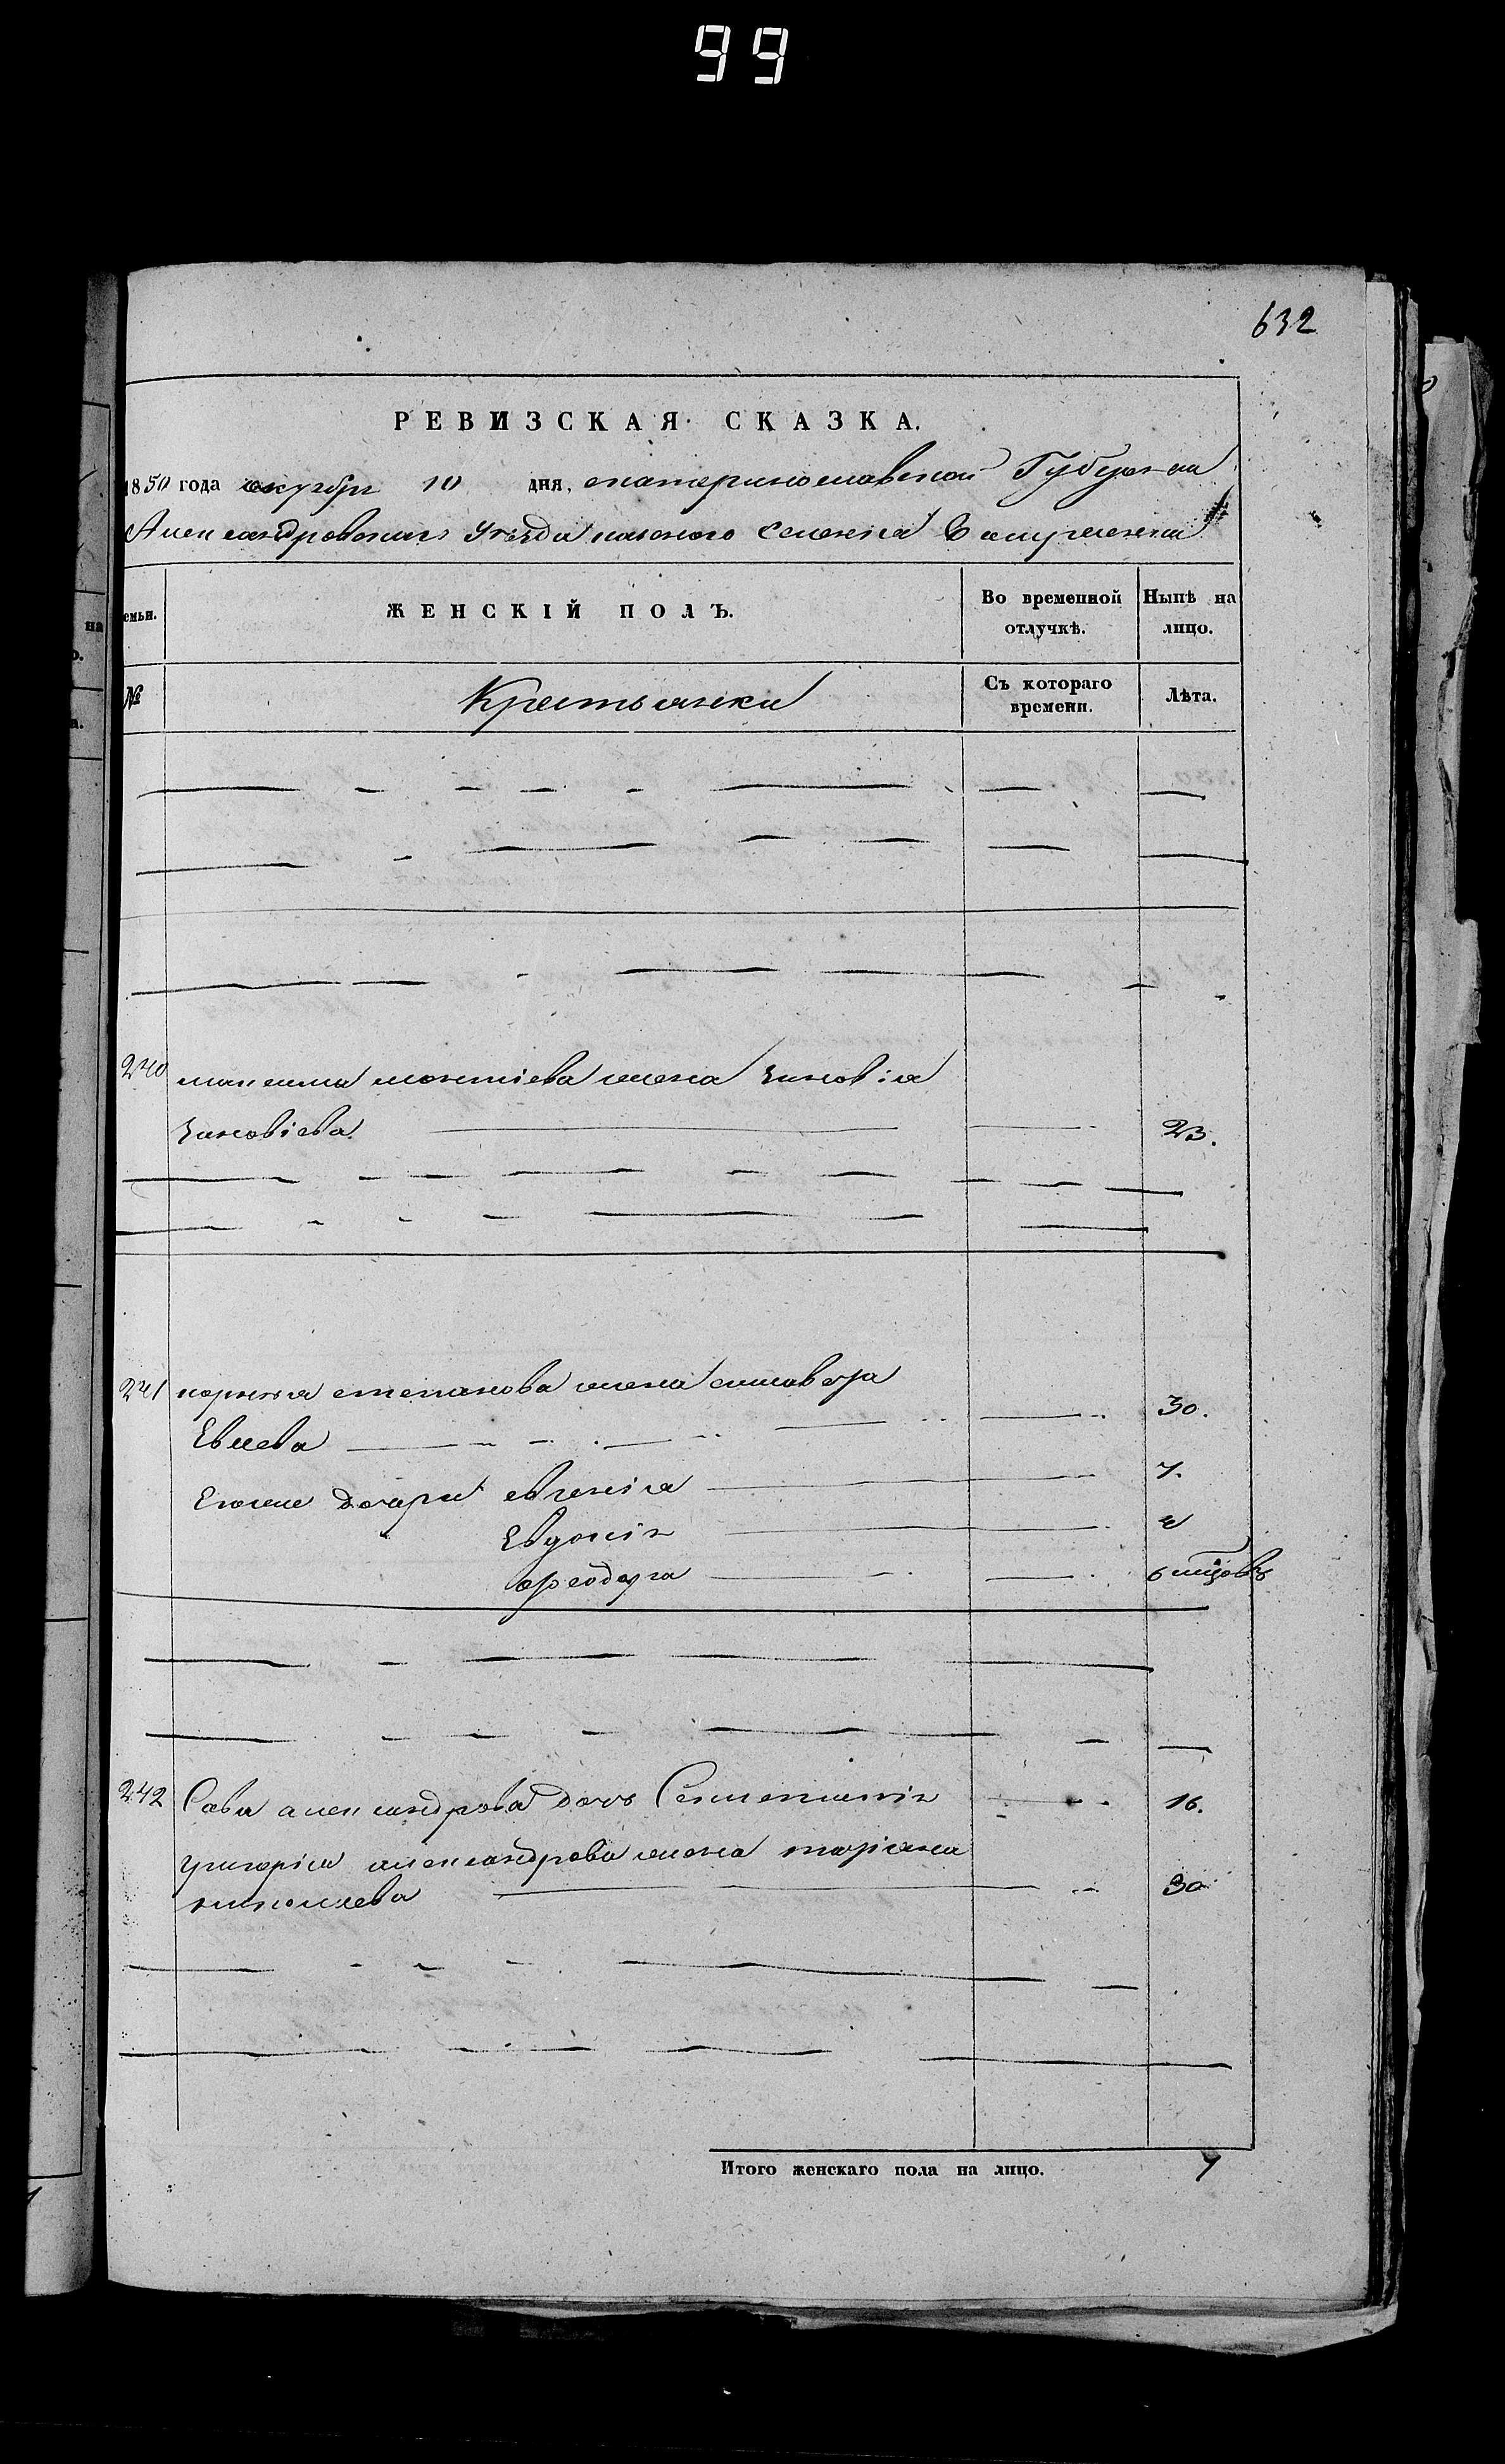 99
632
РЕВИЗСКАЯ СКАЗКА.
1850 года октября 10 дня, екатеринославской Губернии
Александровскаго Уезда казеного Селения
емьи.
ЖЕНСКІЙ ПОЛЪ.
Во временной отлучкѣ.
Нынѣ на лицо.
№
Крестьянки
Съ котораго времени.
Лѣта.
240 жена Зиновія
Зиновіева 23.
241 корнѣя степанова жена
Евлева 30.
Егоже дочери евгенія 7.
Евдокія
феодора 6 мцовъ
242 Сава александрова дочь 16.
григорія александрова жена
николаева 30
Итого женскаго пола на лицо. 7